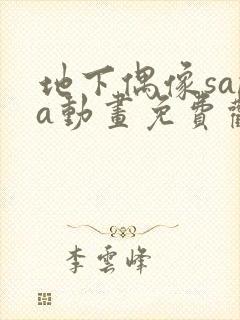 地下偶像sa
a動畫免費
李雲峰